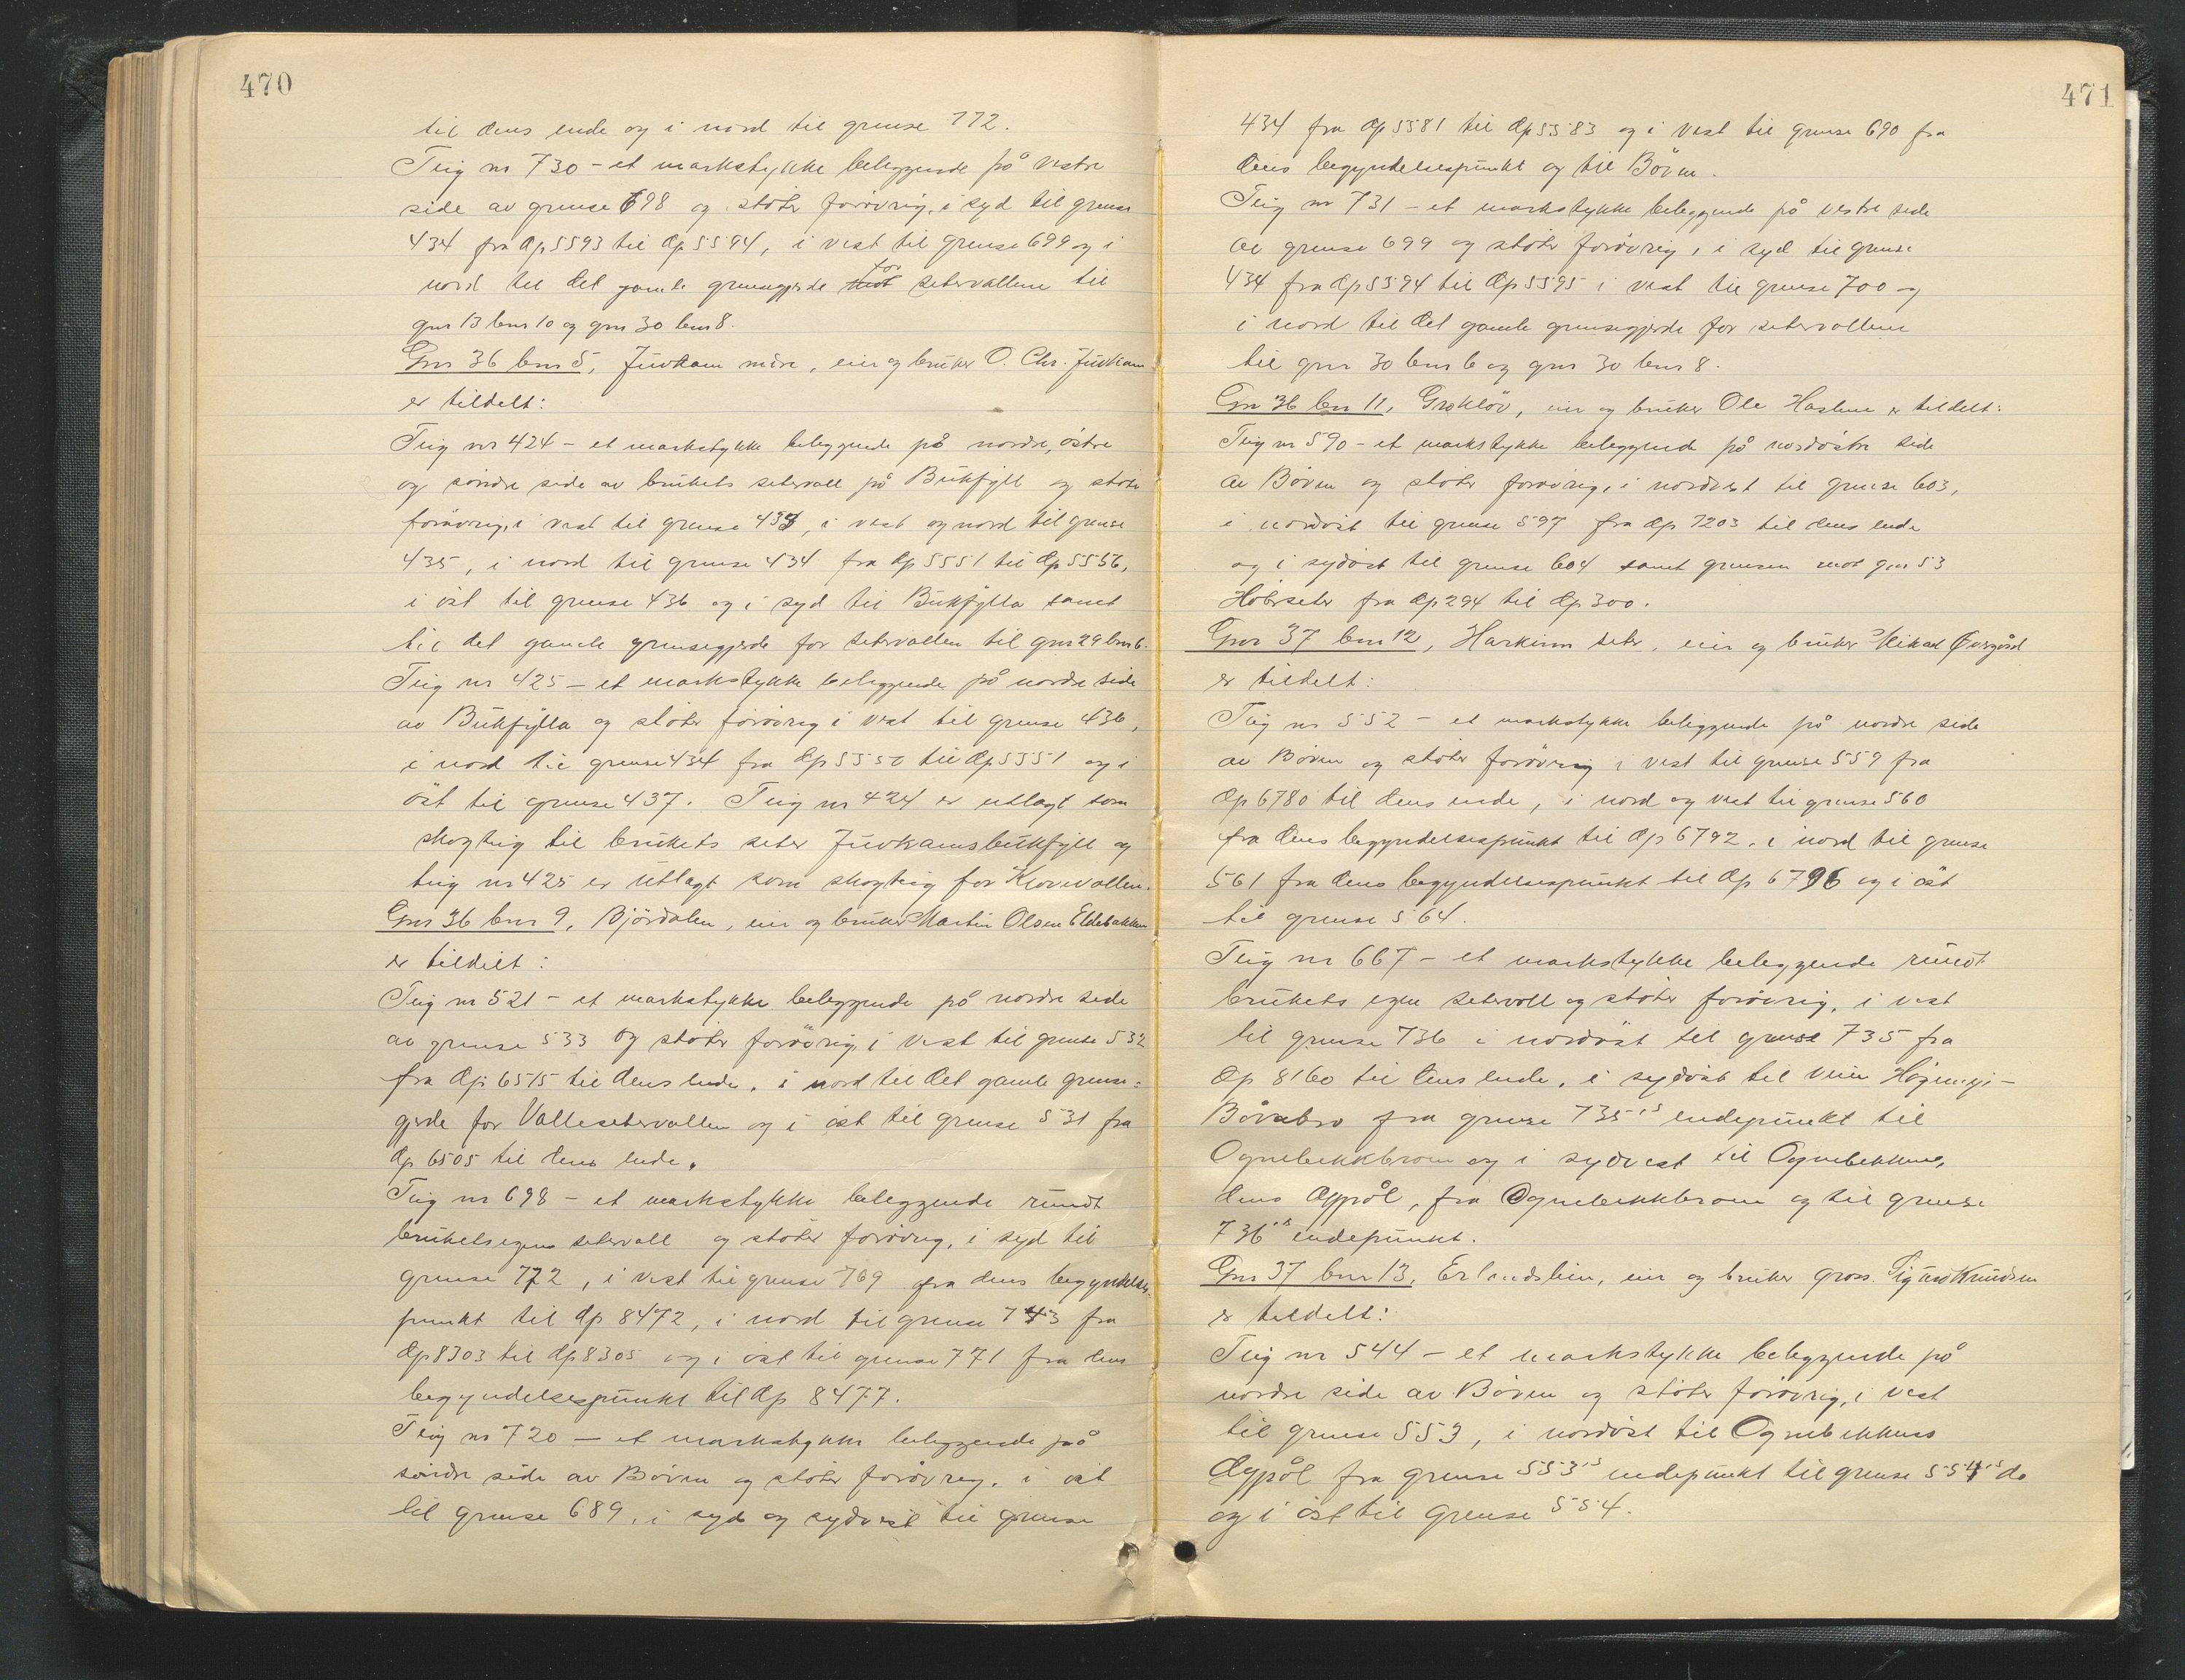 470
til dens ende og i nord til grense 772.
Teig nr 730 – et markstykke beliggende på vestre
side av grense 698 og støter forøvrig, i syd til grense
434 fra Dp 5593 til Dp 5594, i vest til grense 699 og i
nord til det gamle grensegjerde mot for setervollene til
gnr 13 bnr 10 og gnr 30 bnr 8.
Gnr 36 bnr 5, Juvkam nedre, eier og bruker O. Chr. Juvkam
er tildelt:
Teig nr 424 – et markstykke beliggende på nordre, östre
og söndre side av brukets setervoll på Bukfyll og støter
forøvrig, i vest til grense 433, i vest og nord til grense
435, i nord til grense 434 fra Dp 5551 til Dp 5556,
i öst til grense 436 og i syd til Bukfylla samt
til det gamle grensegjerde for setervollen til gnr 29 bnr 6.
Teig nr 425 – et markstykke beliggende på nordre side
av Bukfylla og støter forøvrig i vest til grense 436,
i nord til grense 434 fra Dp 5550 til Dp 5551 og i
öst til grense 437. Teig nr 424 er utlagt som
skogteig til brukets seter Juvkamsbukfyll og
teig nr 425 er utlagt som skogteig for Klovevollen.
Gnr 36 bnr 9, Björdalen, eier og bruker Martin Olsen Eldebakken
er tildelt:
Teig nr 521 – et markstykke beliggende på nordre side
av grense 533 og støter forøvrig, i vest til grense 532
fra Dp 6515 til dens ende, i nord til det gamle grense-
gjerde for Vallesetervollen og i öst til grense 531 fra
Dp 6505 til dens ende.
Teig nr 698 – et markstykke beliggende rundt
brukets egens setervoll og støter forøvrig, i syd til
grense 772, i vest til grense 769 fra dens begyndelses-
punkt til Dp 8472, i nord til grense 743 fra
Dp 8303 til Dp 8305 og i öst til grense 771 fra dens
begyndelsespunkt til Dp 8477.
Teig nr 720 – et markstykke beliggende på
söndre side av Bövra og støter forøvrig, i öst
til grense 689, i syd og sydvest til grense
471
434 fra Dp 5581 til Dp 5583 og i vest til grense 690 fra
dens begyndelsespunkt og til Bövra.
Teig nr 731 – et markstykke beliggende på vestre side
av grense 699 og støter forøvrig, i syd til grense
434 fra Dp 5594 til Dp 5595 i vest til grense 700 og
i nord til det gamle grensegjerde for setervollene
til gnr 30 bnr 6 og gnr 30 bnr 8.
Gnr 36 bnr 11, Grökløv, eier og bruker Ole Haslem er tildelt:
Teig nr 590 – et markstykke beliggende på nordöstre side
av Bövra og støter forøvrig, i nordvest til grense 603,
i nordöst til grense 597 fra Dp 7203 til dens ende
og i sydöst til grense 604 samt grensen mot gnr 53
Höberseter fra Dp 294 til Dp 300.
Gnr 37 bnr 12, Harkinn seter, eier og bruker Mikael Øvergård
er tildelt:
Teig nr 552 – et markstykke beliggende på nordre side
av Bövra og støter forøvrig i vest til grense 559 fra
Dp 6780 til dens ende, i nord og vest til grense 560
fra dens begyndelsespunkt til Dp 6792, i nord til grense
561 fra dens begyndelsespunkt til Dp 6796 og i öst
til grense 564.
Teig nr 667 – et markstykke beliggende rundt
brukets egen setervoll og støter forøvrig, i vest
til grense 736 i nordöst til grense 735 fra
Dp 8160 til dens ende, i sydöst til veien –
Bövrabro fra grense 735's endepunkt til
Ognebekkbroen og i sydvest til Ognebekkens,
dens dyppål, fra Ognebekkbroen og til grense
736's endepunkt.
Gnr 37 bnr 13, Erlandslien, eier og bruker gross. Sigurd Knudsen
er tildelt:
Teig nr 544 – et markstykke beliggende på
nordre side av Bövra og støter forøvrig, i vest
til grense 553, i nordöst til Ognebekkens
dyppål fra grense 553's endepunkt til grense 554's do
og i öst til grense 554.